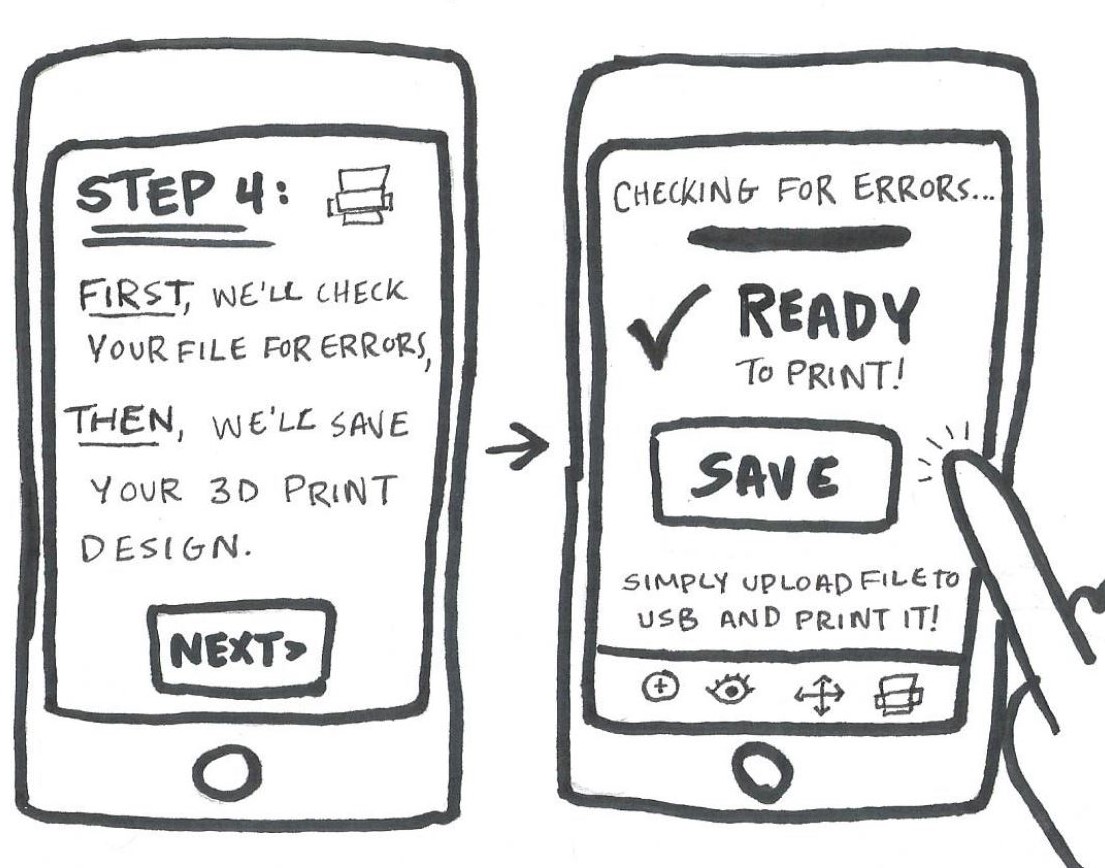 STEP 4:
FIRST, WE'LL CHECK
YOUR FILE FOR ERRORS,
THEN, WE'LL SAVE
YOUR 3D PRINT
DESIGN.
NEXT>
CHECKING FOR ERRORS...
READY
TO PRINT!
SAVE
SIMPLY UPLOAD FILE TO
USB AND PRINT IT!